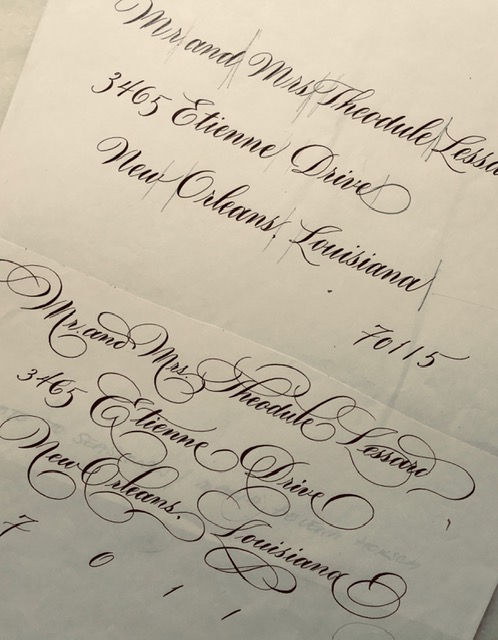 Mr and Mrs Theodule
3465 Etienne Drive
New Orleans, Louisiana
70115
Mr. and Mrs. Theodule Lessard
3465 Etienne Drive
New Orleans, Louisiana
7 0 1 1